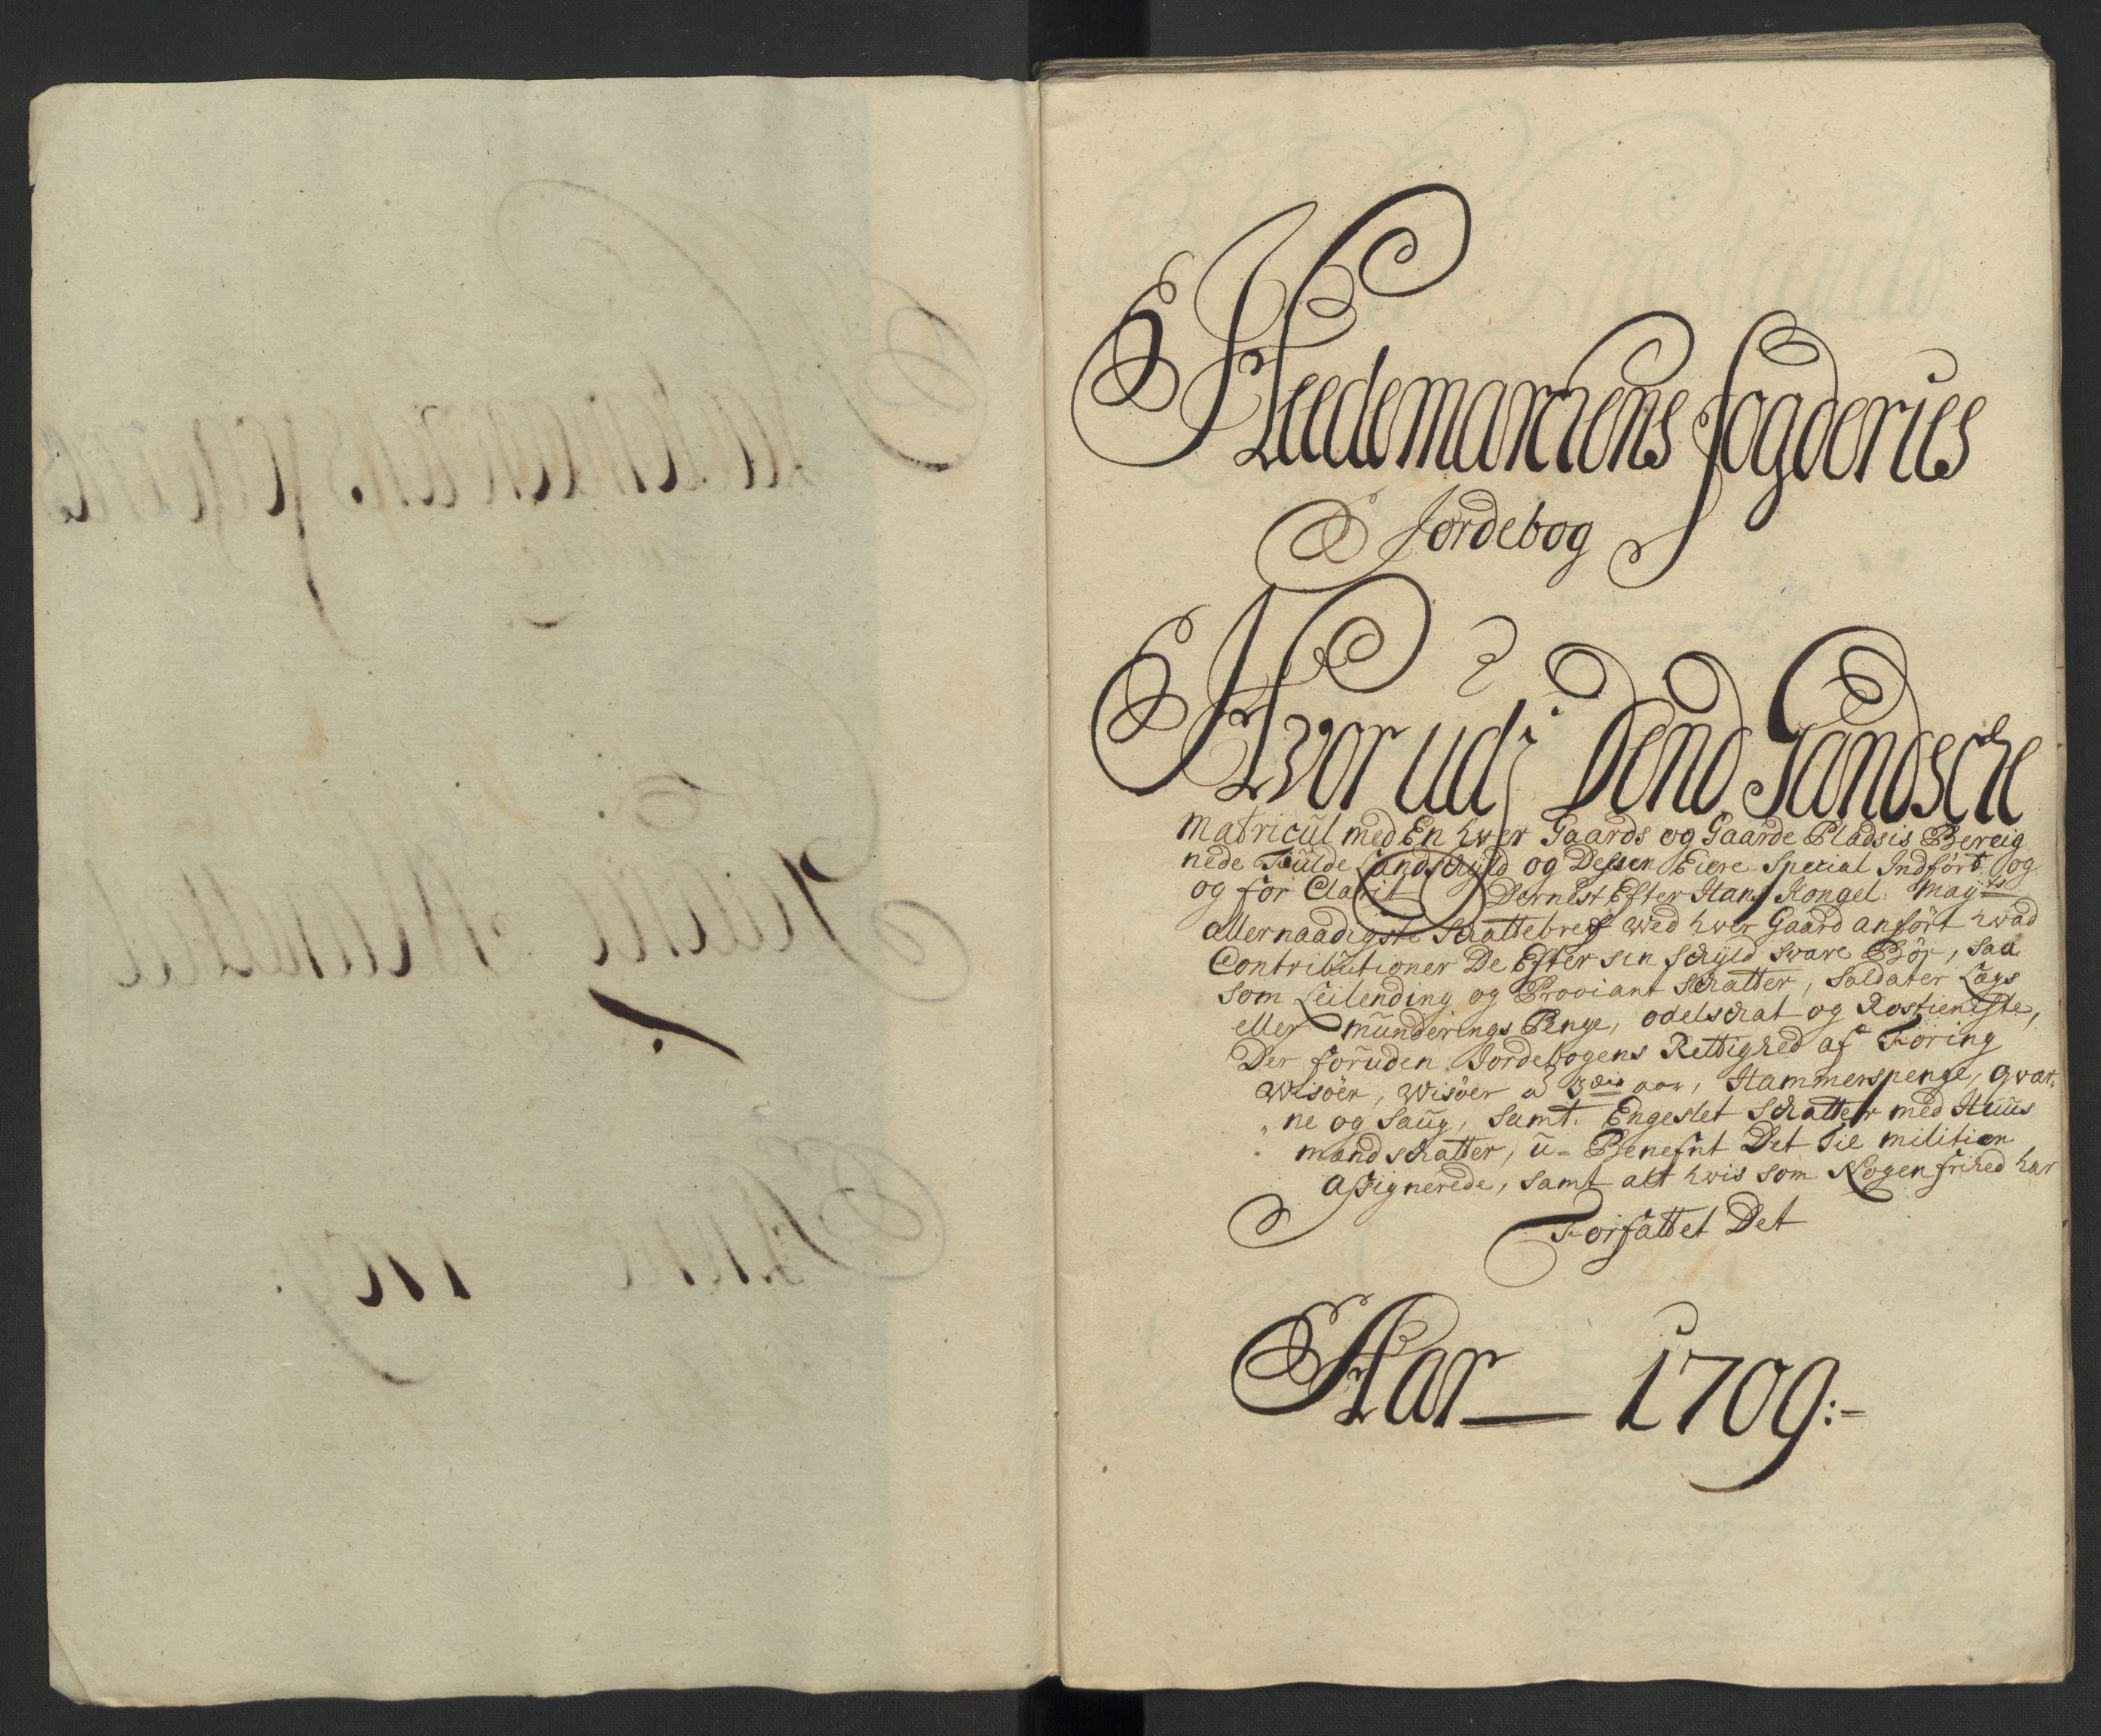 Heedemarchens fogderies
Jordebog
Hvor udj Dend Gandsche
Matricul med En hver Gaards og Gaarde Pladsis Bereig
nede Fulde Landschyld og Dessen Eiere Special Indført og
og for Clarit Dernest Efter Hans Kongel: May:ts
allernaadigste Schattebref wed hver Gaard anført hwad
Contributioner De Efter sin schyld svare Bör, saa
som Leilending og Proviant Schatter, Soldater Lægs
eller munderings Penge, odelschat og Rostieneste,
Der foruden Jordebogens Rettighed af Foring
Wisöer, Wisöer a 3die aar, Hammerspenge, Qvar,
ne og Saug, samt Engeslet Schatter med Huus
mand schatter, u- Benefnt Det Til militien
Assignerede, samt alt hvis som Nogen frihed har
Forfattet Det
Aar 1709:-